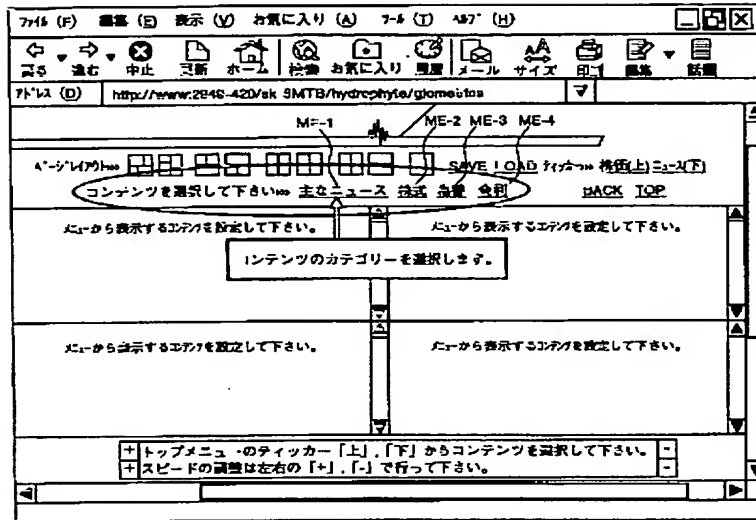 ファイル (F) 編集 (E) 表示 (V) お気に入り (A) ツール (T) ヘルプ (H)
戻る 進む 中止 更新 ホーム 検索 お気に入り 履歴 メール サイズ 印刷 編集
アドレス (D) http://www.2948-420/sk
ME-1 ME-2 ME-3 ME-4
ページレイアウト»» SAVE LOAD ティッカー»» 株価(上) ニュース(下)
コンテンツを選択して下さい»» 主なニュース 株式 金利 BACK TOP
メニューから表示するコンテンツを設定して下さい。 メニューから表示するコンテンツを設定して下さい。
コンテンツのカテゴリーを選択します。
メニューから表示するコンテンツを設定して下さい。 メニューから表示するコンテンツを設定して下さい。
+ トップメニューのティッカー「上」,「下」からコンテンツを選択して下さい。 -
+ スピードの調整は左右の「+」,「-」で行って下さい。 -